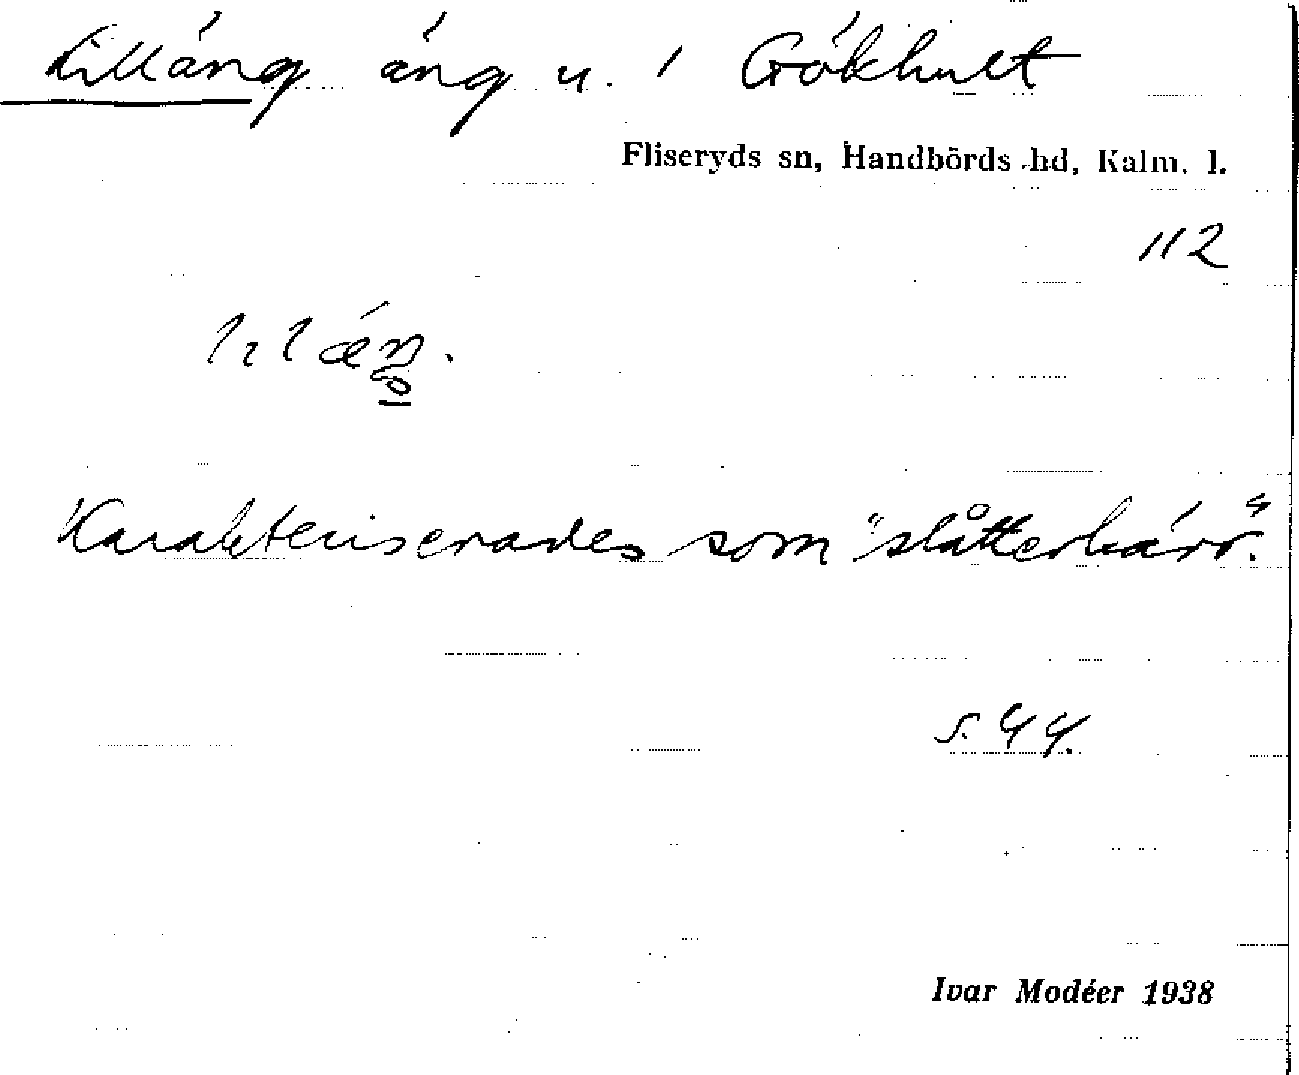 Lilläng äng u. / Gökhult
Fliseryds sn, Handbörds hd, Kalm. l.
112
Karakteriserades som "slåtterkärr."
s. 44.
Ivar Modéer 1938